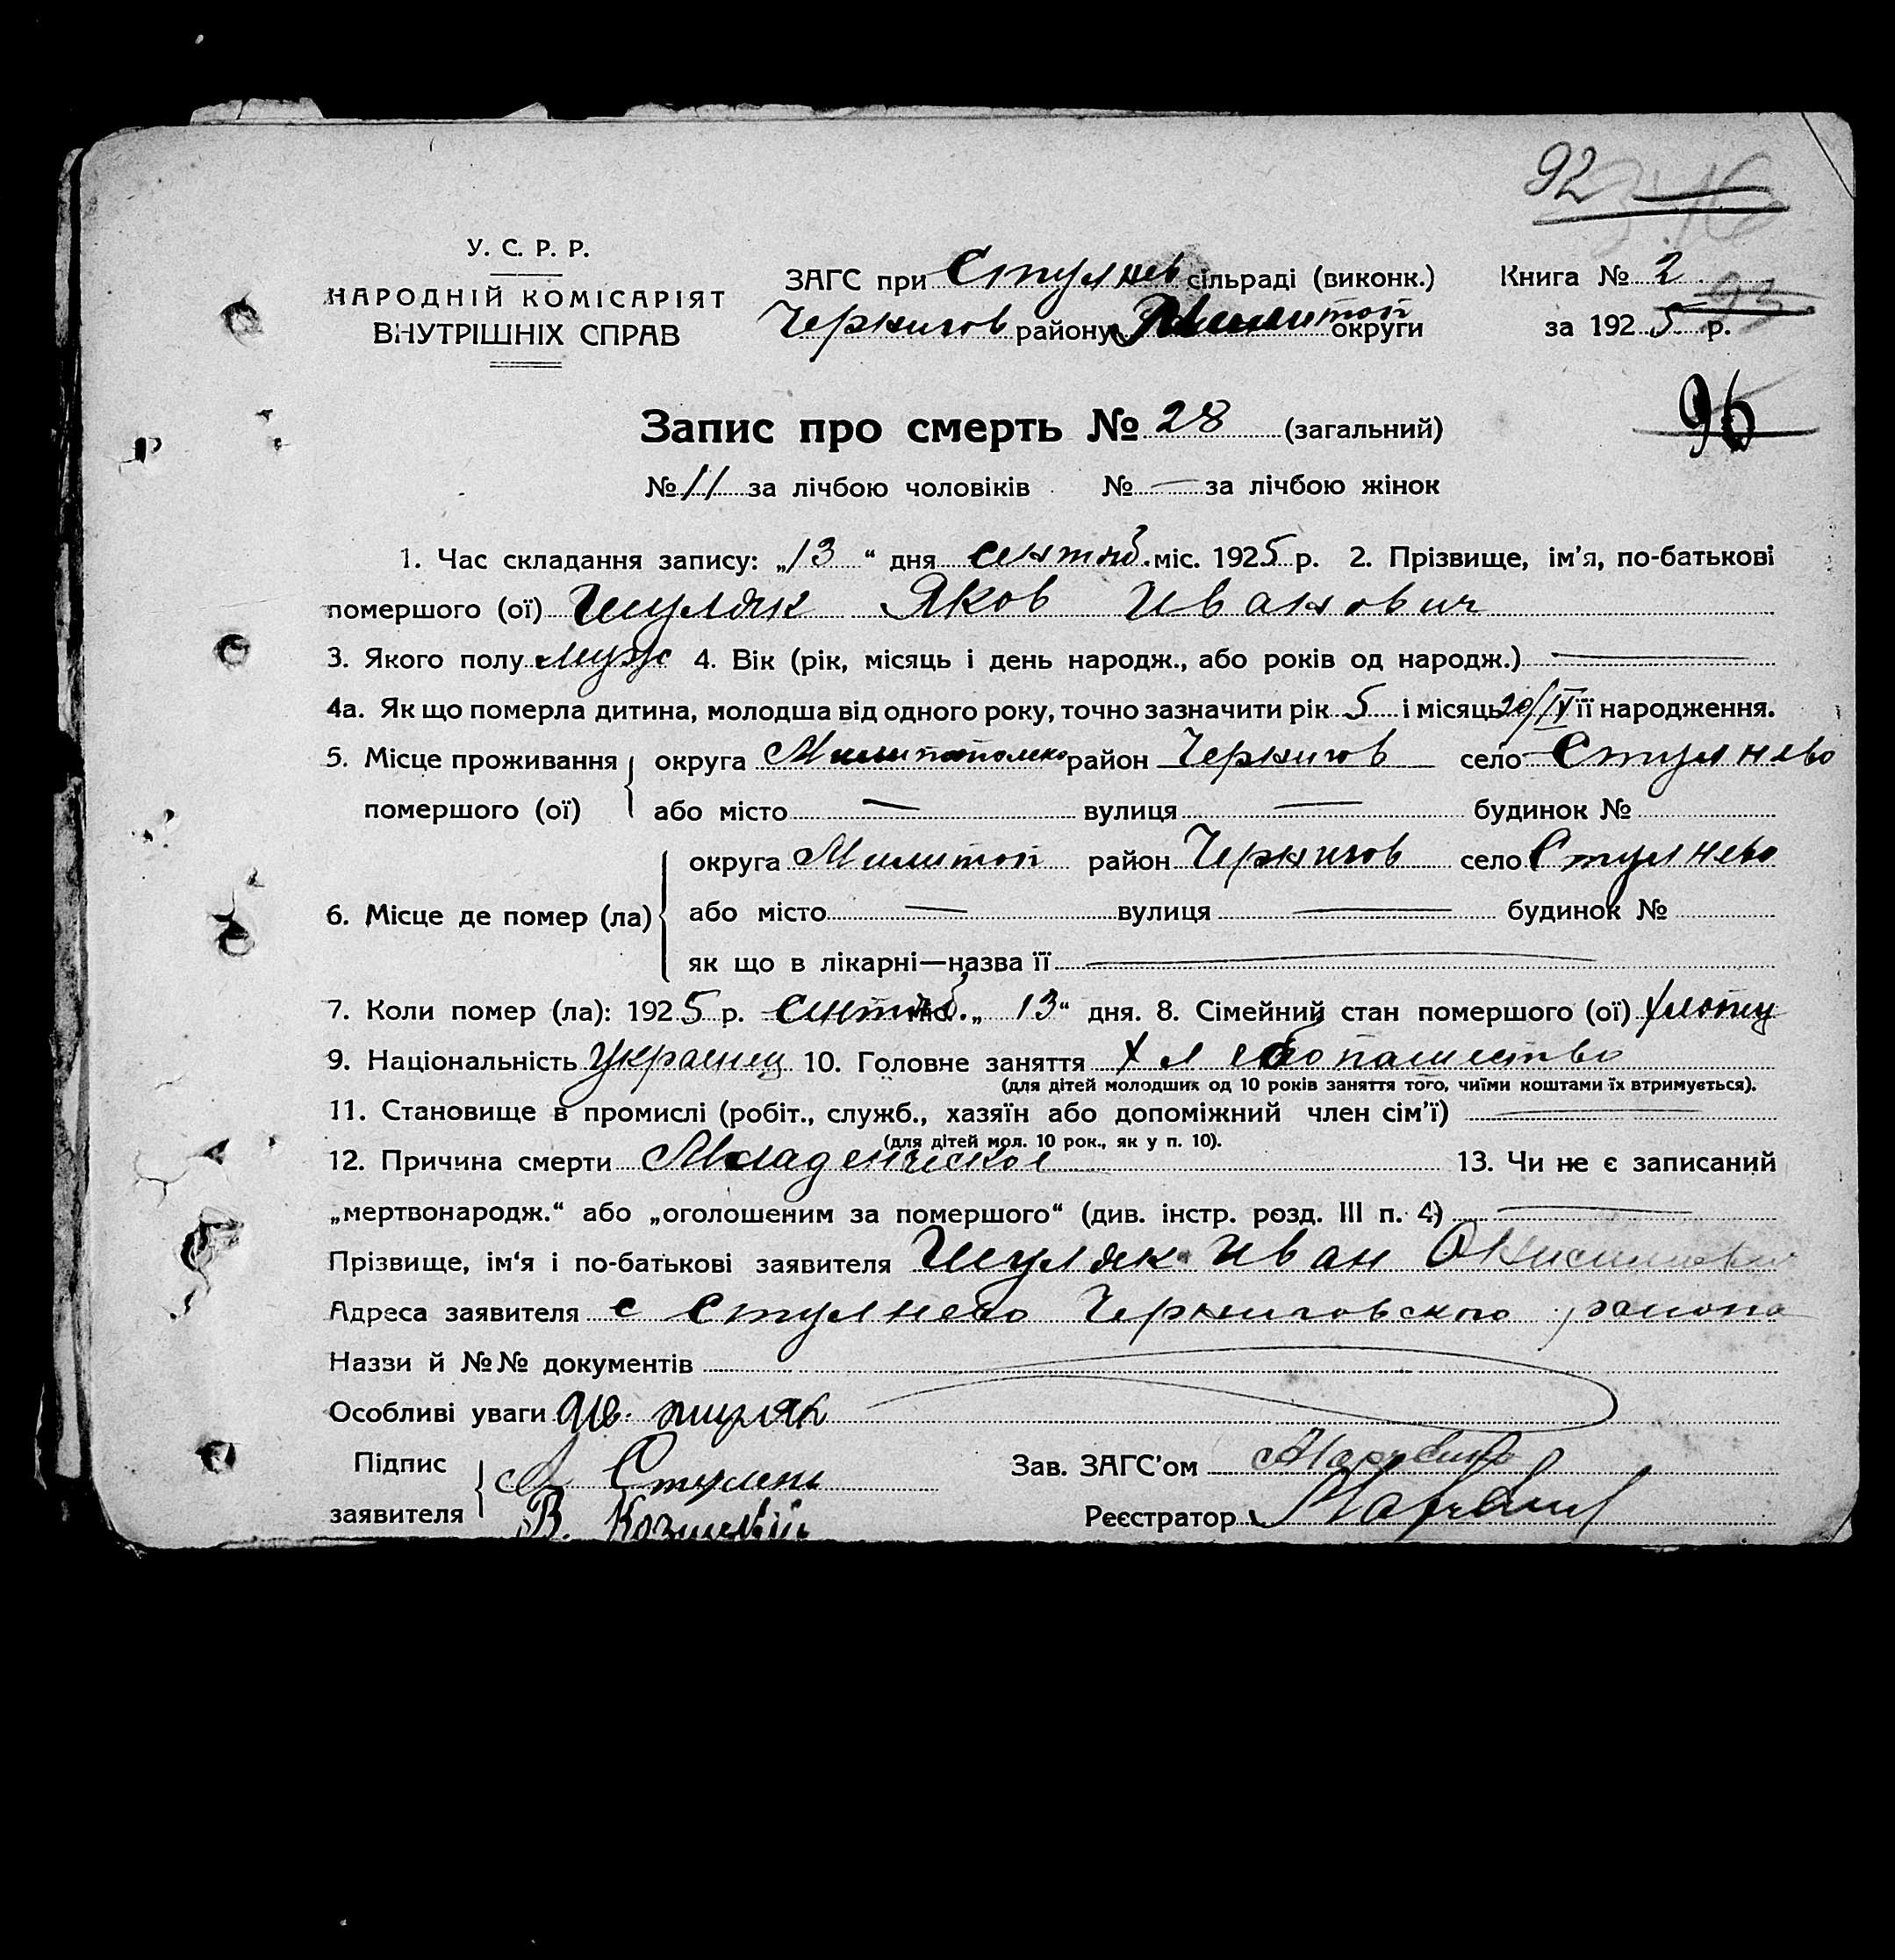 92
У. С. Р. Р.
НАРОДНІЙ КОМІСАРІЯТ
ВНУТРІШНІХ СПРАВ
ЗАГС при Стулнев сільраді (виконк.)
Чернигов району округи
Книга № 2
93
за 1925 р.
96
Запис про смерть № 28 (загальний)
№ 11 за лічбою чоловіків № — за лічбою жінок
1. Час складання запису: „13“ дня сентяб. міс. 1925 р. 2. Прізвище, ім'я, по-батькові
помершого (ої) Шуляк Яков Иванович
3. Якого полу муж 4. Вік (рік, місяць і день народж., або років од народж.) —
4а. Як що померла дитина, молодша від одного року, точно зазначити рік 5 і місяць 20/IV її народження.
5. Місце проживання округа район Чернигов село Стулнево
помершого (ої) або місто — вулиця — будинок №
округа Милитоп район Чернигов село Стулнево
6. Місце де помер (ла) або місто — вулиця — будинок №
як що в лікарні—назва її —
7. Коли помер (ла): 1925 р. сентяб міс. „13“ дня. 8. Сімейний стан помершого (ої) хлопец
9. Національність Украинец 10. Головне заняття Хлебопашество
(для дітей молодших од 10 років заняття того, чиїми коштами їх втримується).
11. Становище в промислі (робіт., служб., хазяїн або допоміжний член сім'ї) —
(для дітей мол. 10 рок., як у п. 10).
12. Причина смерти Младенческое 13. Чи не є записаний
„мертвонародж.“ або „оголошеним за помершого“ (див. інстр. розд. III п. 4) —
Прізвище, ім'я і по-батькові заявителя Шуляк Иван
Адреса заявителя с Стулнево Черниговского района
Назви й №№ документів
Особливі уваги Ив. Шуляк
Підпис
заявителя
Стулень
В.
Зав. ЗАГС'ом
Реєстратор